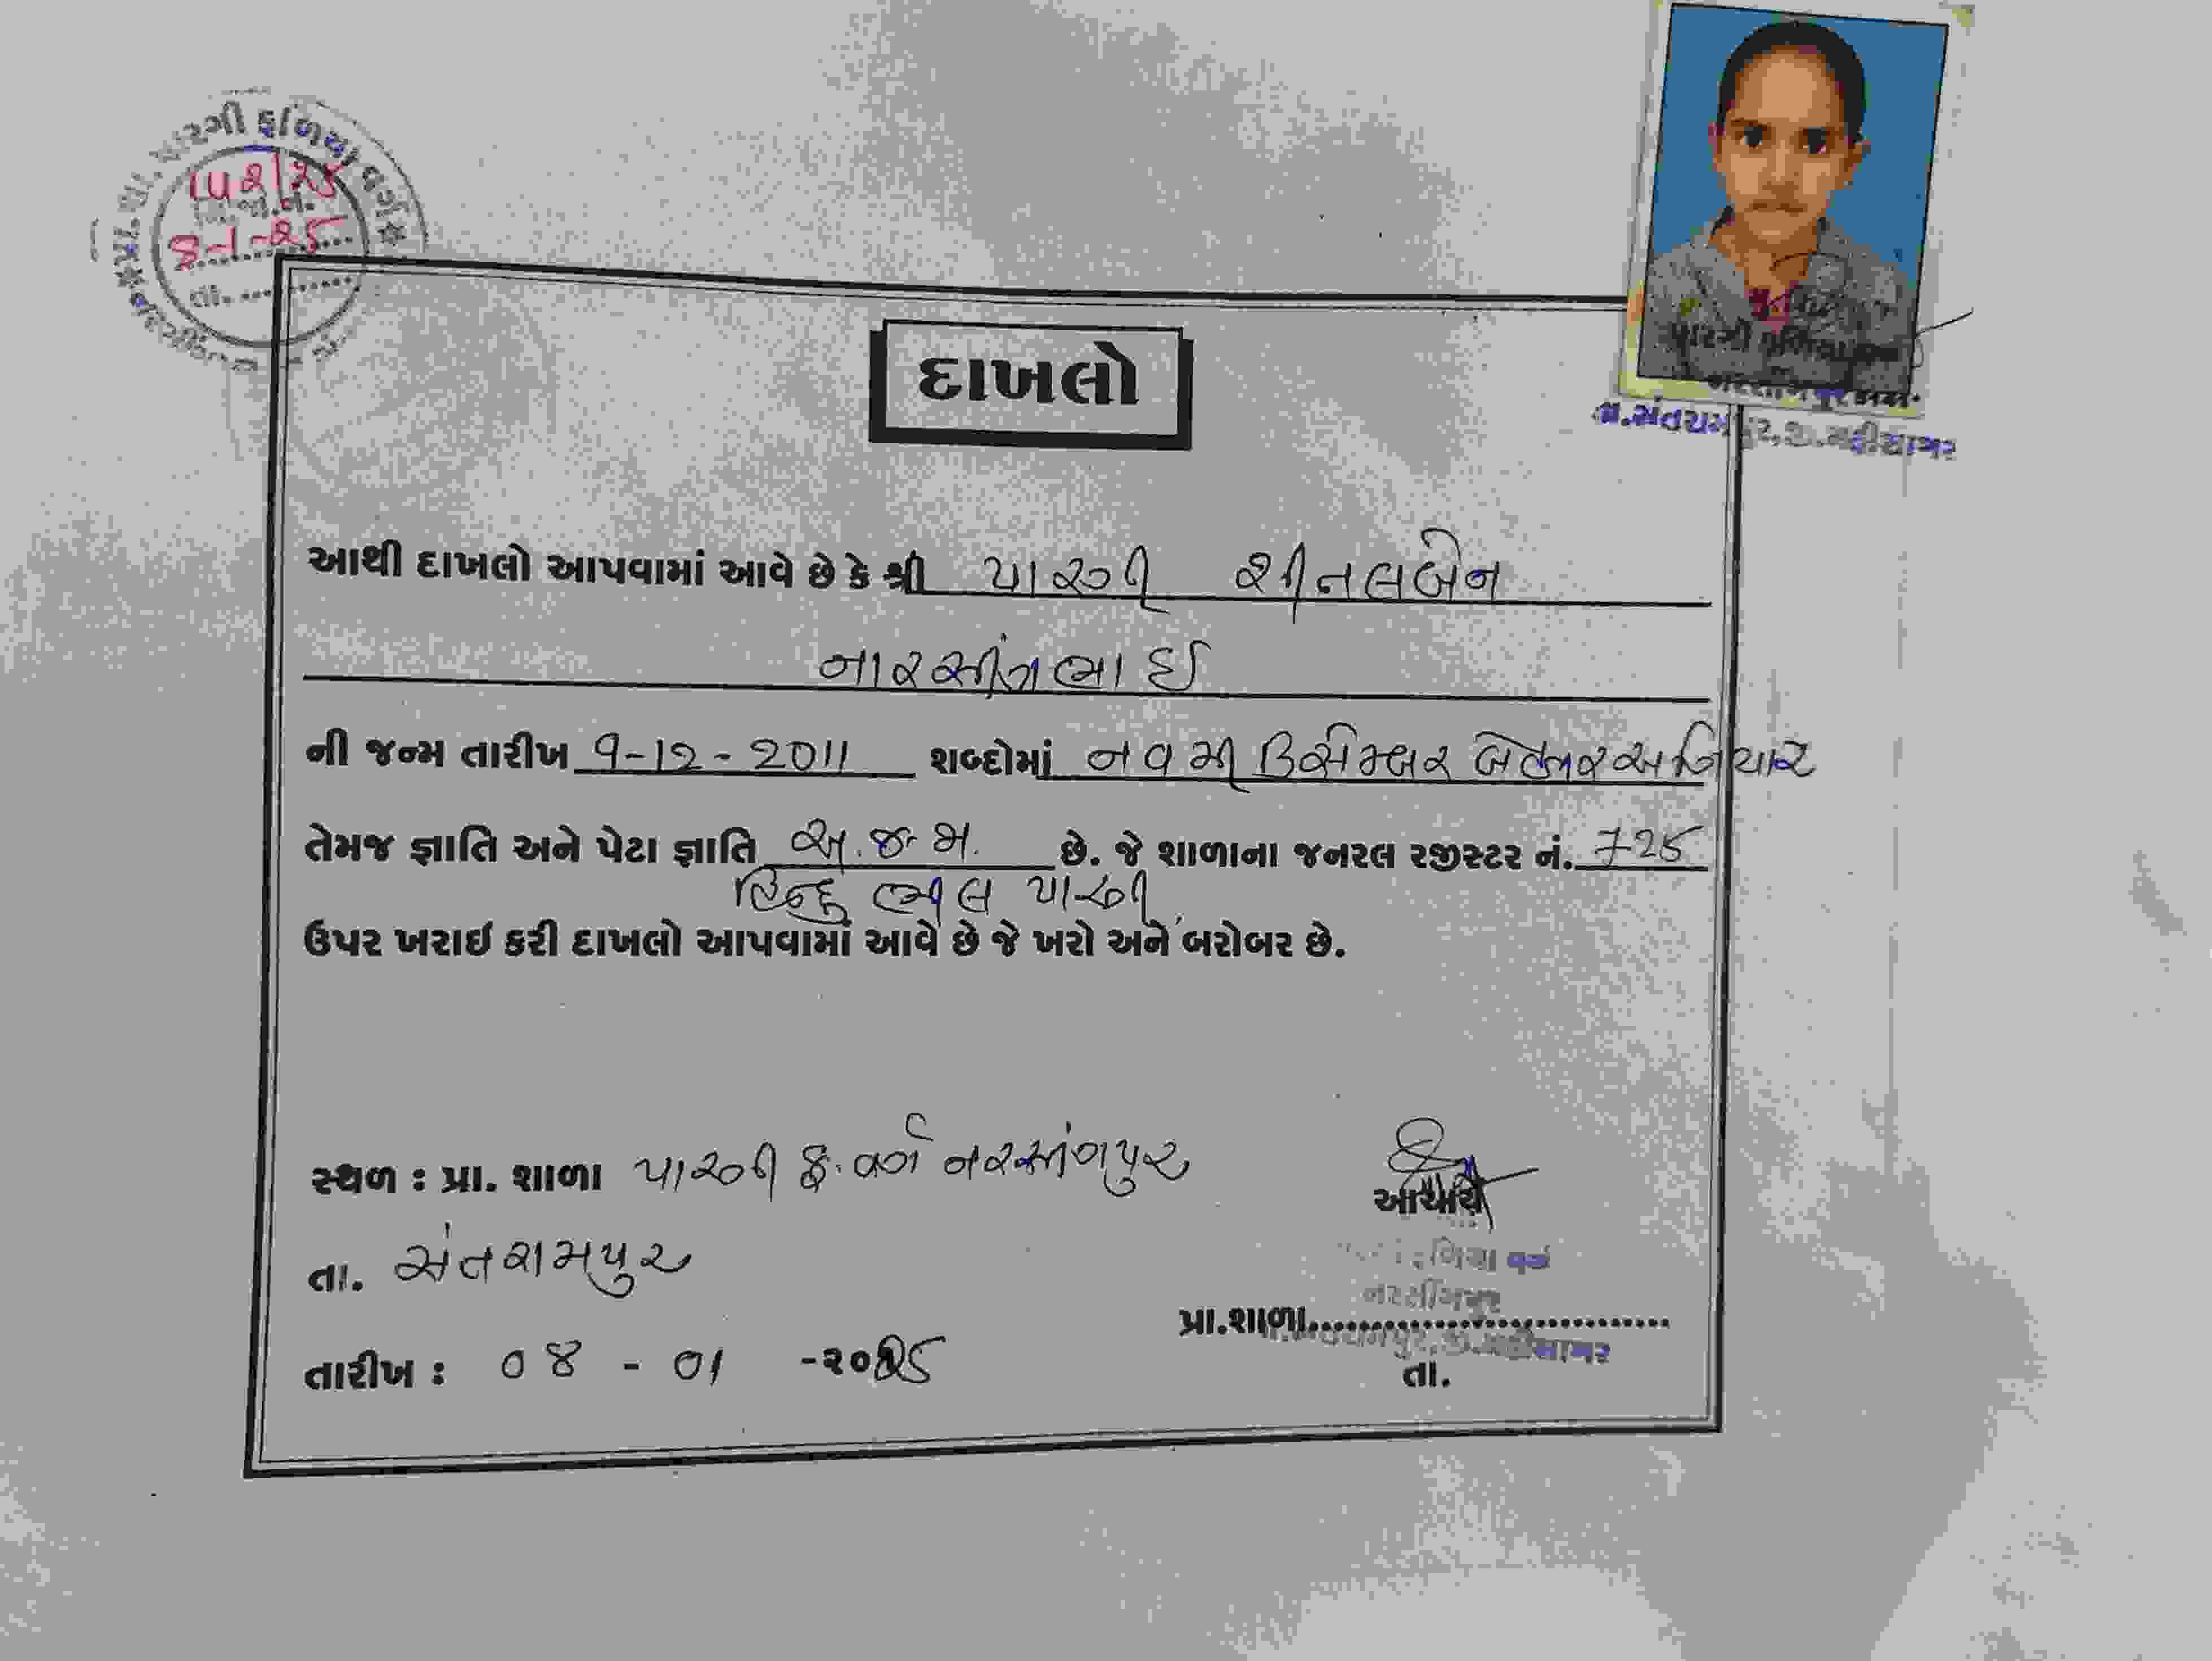 પારગી ફળિયા વર્ગ
૧૫૨/૨૫
જા.નં.
૪-૧-૨૫
તા.
તા.સંતરામપુર,જી.મહીસાગર
દાખલો
આથી દાખલો આપવામાં આવે છે કે શ્રી પારગી શીતલબેન
નારસીંગભાઈ
ની જન્મ તારીખ 9-12-2011 શબ્દોમાં નવમી ડિસેમ્બર બે હજાર અગિયાર
તેમજ જ્ઞાતિ અને પેટા જ્ઞાતિ અ.જ.જા. છે. જે શાળાના જનરલ રજીસ્ટર નં. 725
હિન્દુ ભીલ પારગી
ઉપર ખરાઇ કરી દાખલો આપવામાં આવે છે જે ખરો અને બરોબર છે.
સ્થળ : પ્રા. શાળા પારગી ફ. વર્ગ નરસીંગપુર
આચાર્ય
તા. સંતરામપુર
ફળિયા વર્ગ
નરસીંગપુર
પ્રા.શાળા
તા.સંતરામપુર,જી.મહીસાગર
તારીખ : ૦૪ - ૦૧ -૨૦૨૫
તા.